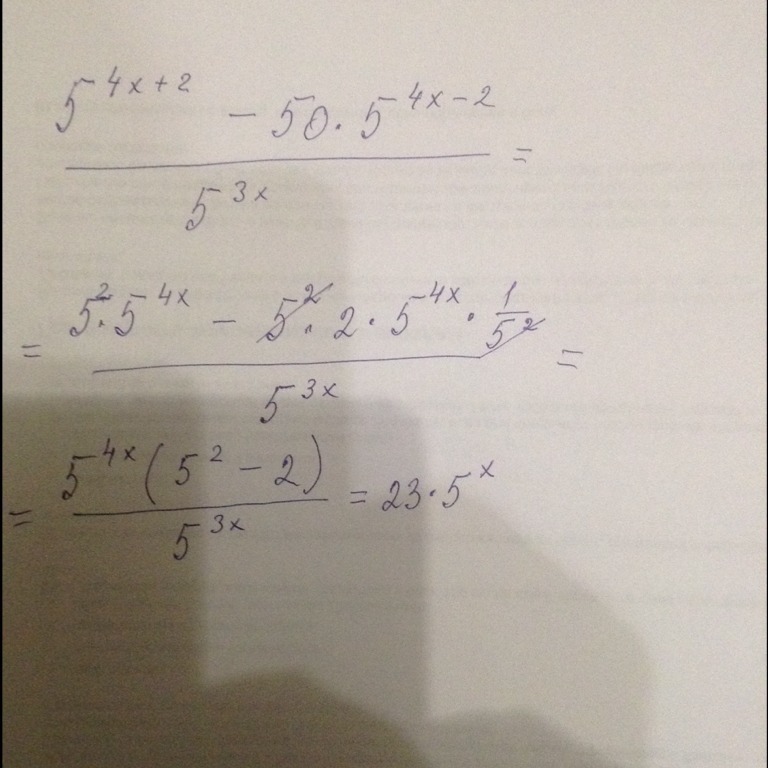 5^{4x+2} - 50·5^{4x-2}
5^{3x} =
= 5^2·5^{4x} - 5^2·2·5^{4x}·1/5^2
5^{3x} =
= 5^{4x}(5^2 - 2)
5^{3x} = 23·5^x